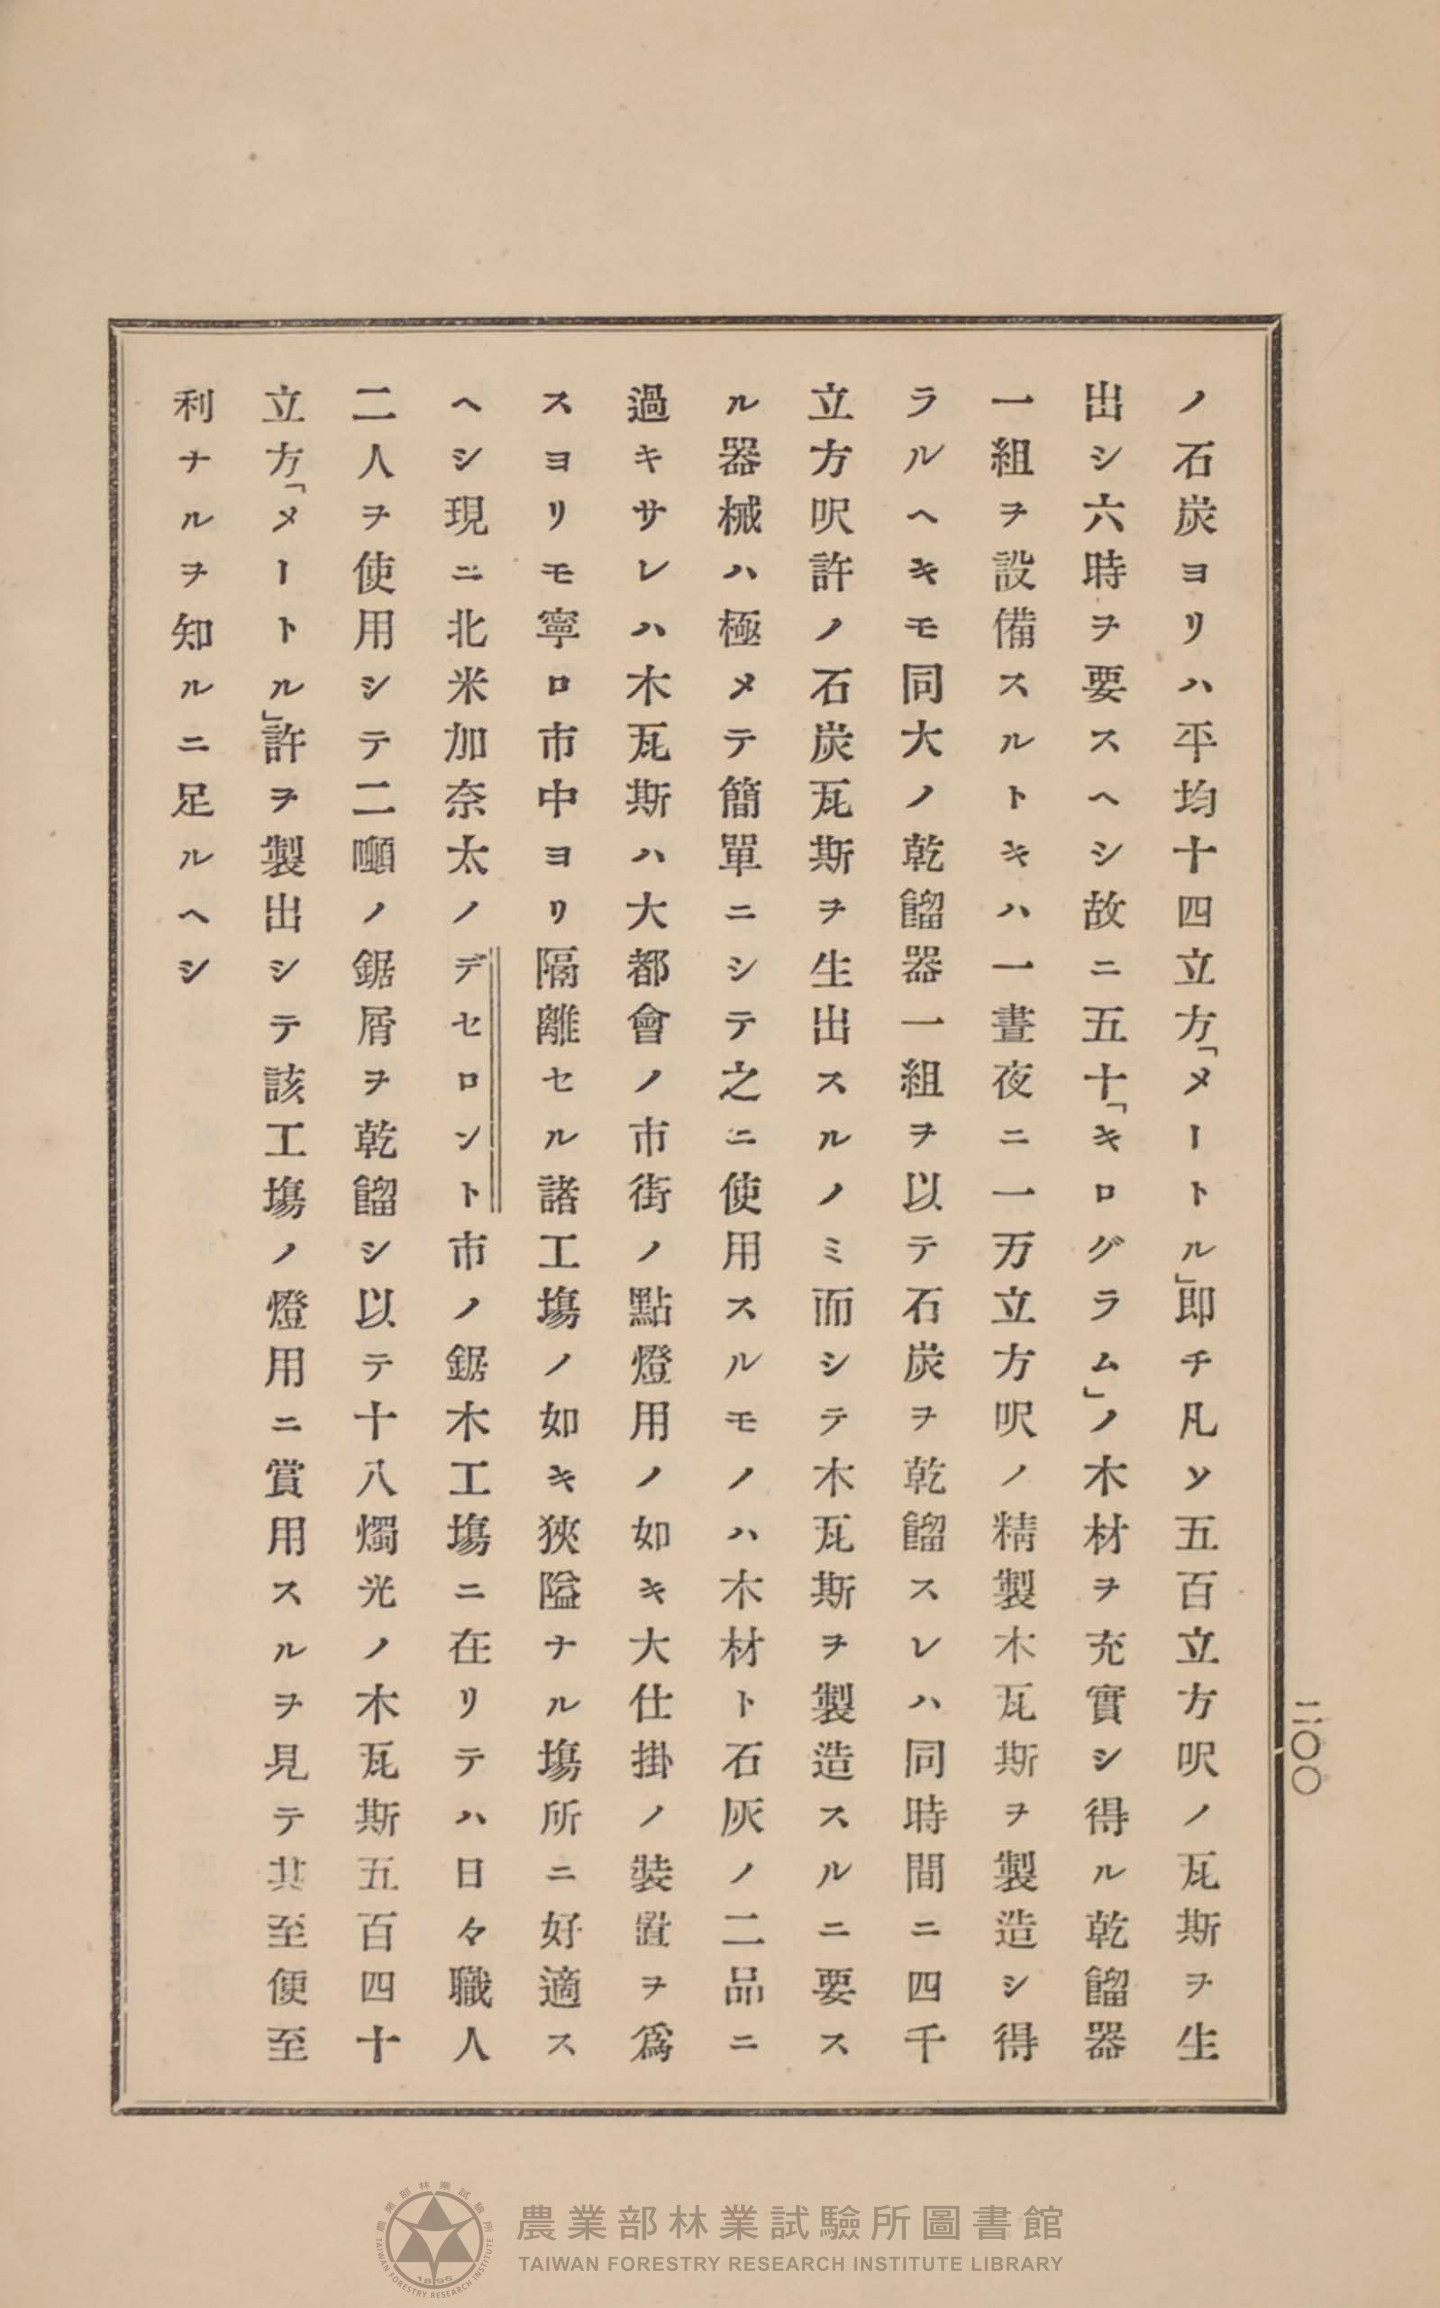 ノ石炭ヨリハ平均十四立方「メートル」即チ凡ソ五百立方呎ノ瓦斯ヲ生
出シ六時ヲ要スヘシ故ニ五十「キログラム」ノ木材ヲ充實シ得ル乾餾器
一組ヲ設備スルトキハ一晝夜ニ一万立方呎ノ精製木瓦斯ヲ製造シ得
ラルヘキモ同大ノ乾餾器一組ヲ以テ石炭ヲ乾餾スレハ同時間ニ四千
立方呎許ノ石炭瓦斯ヲ生出スルノミ而シテ木瓦斯ヲ製造スルニ要ス
ル器械ハ極メテ簡單ニシテ之ニ使用スルモノハ木材ト石灰ノ二品ニ
過キサレハ木瓦斯ハ大都會ノ市街ノ點燈用ノ如キ大仕掛ノ裝置ヲ爲
スヨリモ寧ロ市中ヨリ隔離セル諸工塲ノ如キ狹隘ナル塲所ニ好適ス
ヘシ現ニ北米加奈太ノデセロント市ノ鋸木工塲ニ在リテハ日々職人
二人ヲ使用シテ二噸ノ鋸屑ヲ乾餾シ以テ十八燭光ノ木瓦斯五百四十
立方「メートル」許ヲ製出シテ該工塲ノ燈用ニ賞用スルヲ見テ其至便至
利ナルヲ知ルニ足ルヘシ
二〇〇
農業部林業試驗所圖書館
TAIWAN FORESTRY RESEARCH INSTITUTE LIBRARY
農業部林業試驗所
TAIWAN FORESTRY RESEARCH INSTITUTE
1896